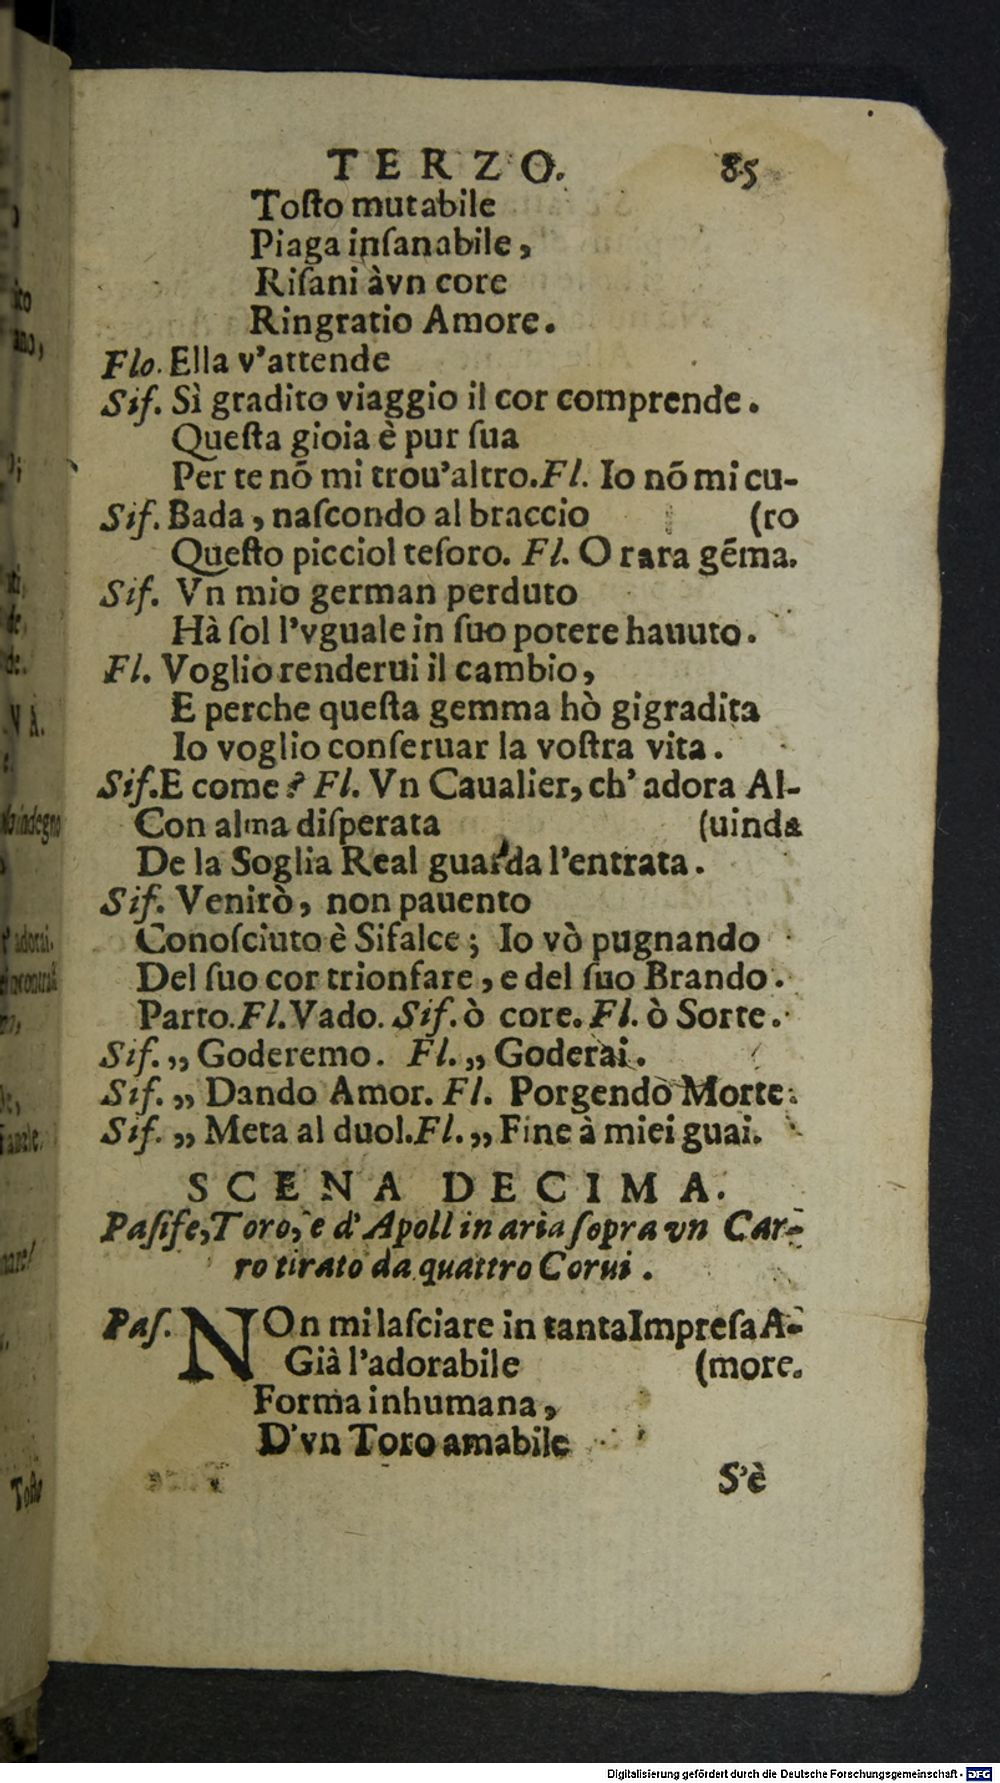 TERZO. 85
Toſto mutabile
Piaga inſanabile,
Riſani àvn core
Ringratio Amore.
Flo. Ella v'attende
Sif. Sì gradito viaggio il cor comprende.
Queſta gioia è pur ſua
Per te nõ mi trou'altro. Fl. Io nõ mi cu-
Sif. Bada, naſcondo al braccio (ro
Queſto picciol teſoro. Fl. O rara gẽma.
Sif. Vn mio german perduto
Hà ſol l'vguale in ſuo potere hauuto.
Fl. Voglio renderui il cambio,
E perche queſta gemma hò gigradita
Io voglio conſeruar la voſtra vita.
Sif. E come? Fl. Vn Caualier, ch'adora Al-
Con alma diſperata (uinda
De la Soglia Real guarda l'entrata.
Sif. Venirò, non pauento
Conoſciuto è Sifalce; Io vò pugnando
Del ſuo cor trionfare, e del ſuo Brando.
Parto. Fl. Vado. Sif. ò core. Fl. ò Sorte.
Sif. „ Goderemo. Fl. „ Goderai.
Sif. „ Dando Amor. Fl. Porgendo Morte.
Sif. „ Meta al duol. Fl. „ Fine à miei guai.
SCENA DECIMA.
Paſife, Toro, e d'Apoll in aria ſopra vn Car-
ro tirato da quattro Corui.
Paſ. NOn mi laſciare in tanta Impreſa A-
Già l'adorabile (more.
Forma inhumana,
D'vn Toro amabile
S'è
Toſto
Digitalisierung gefördert durch die Deutsche Forschungsgemeinschaft - DFG